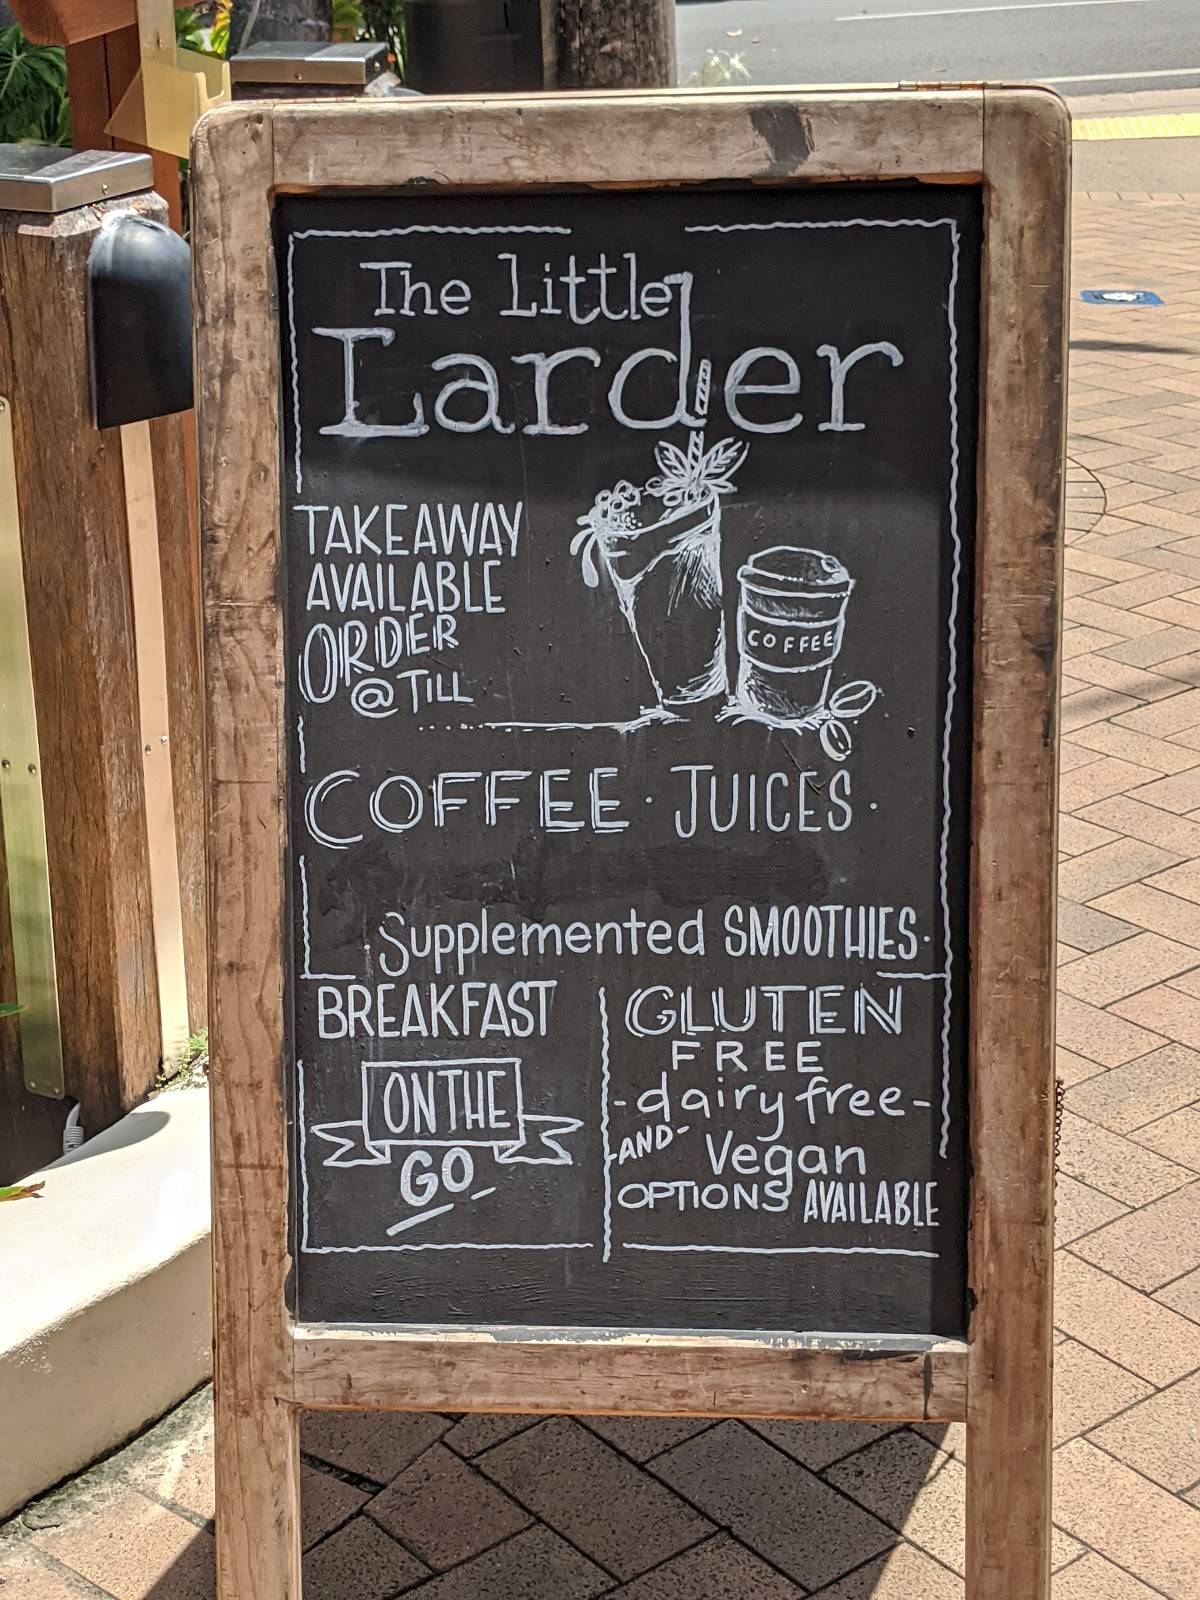 The Little
Larder
TAKEAWAY
AVAILABLE
ORDER
@ TILL
COFFEE
COFFEE · JUICES ·
Supplemented SMOOTHIES ·
BREAKFAST
ON THE
GO
GLUTEN
FREE
- dairy free -
- AND -
Vegan
OPTIONS AVAILABLE